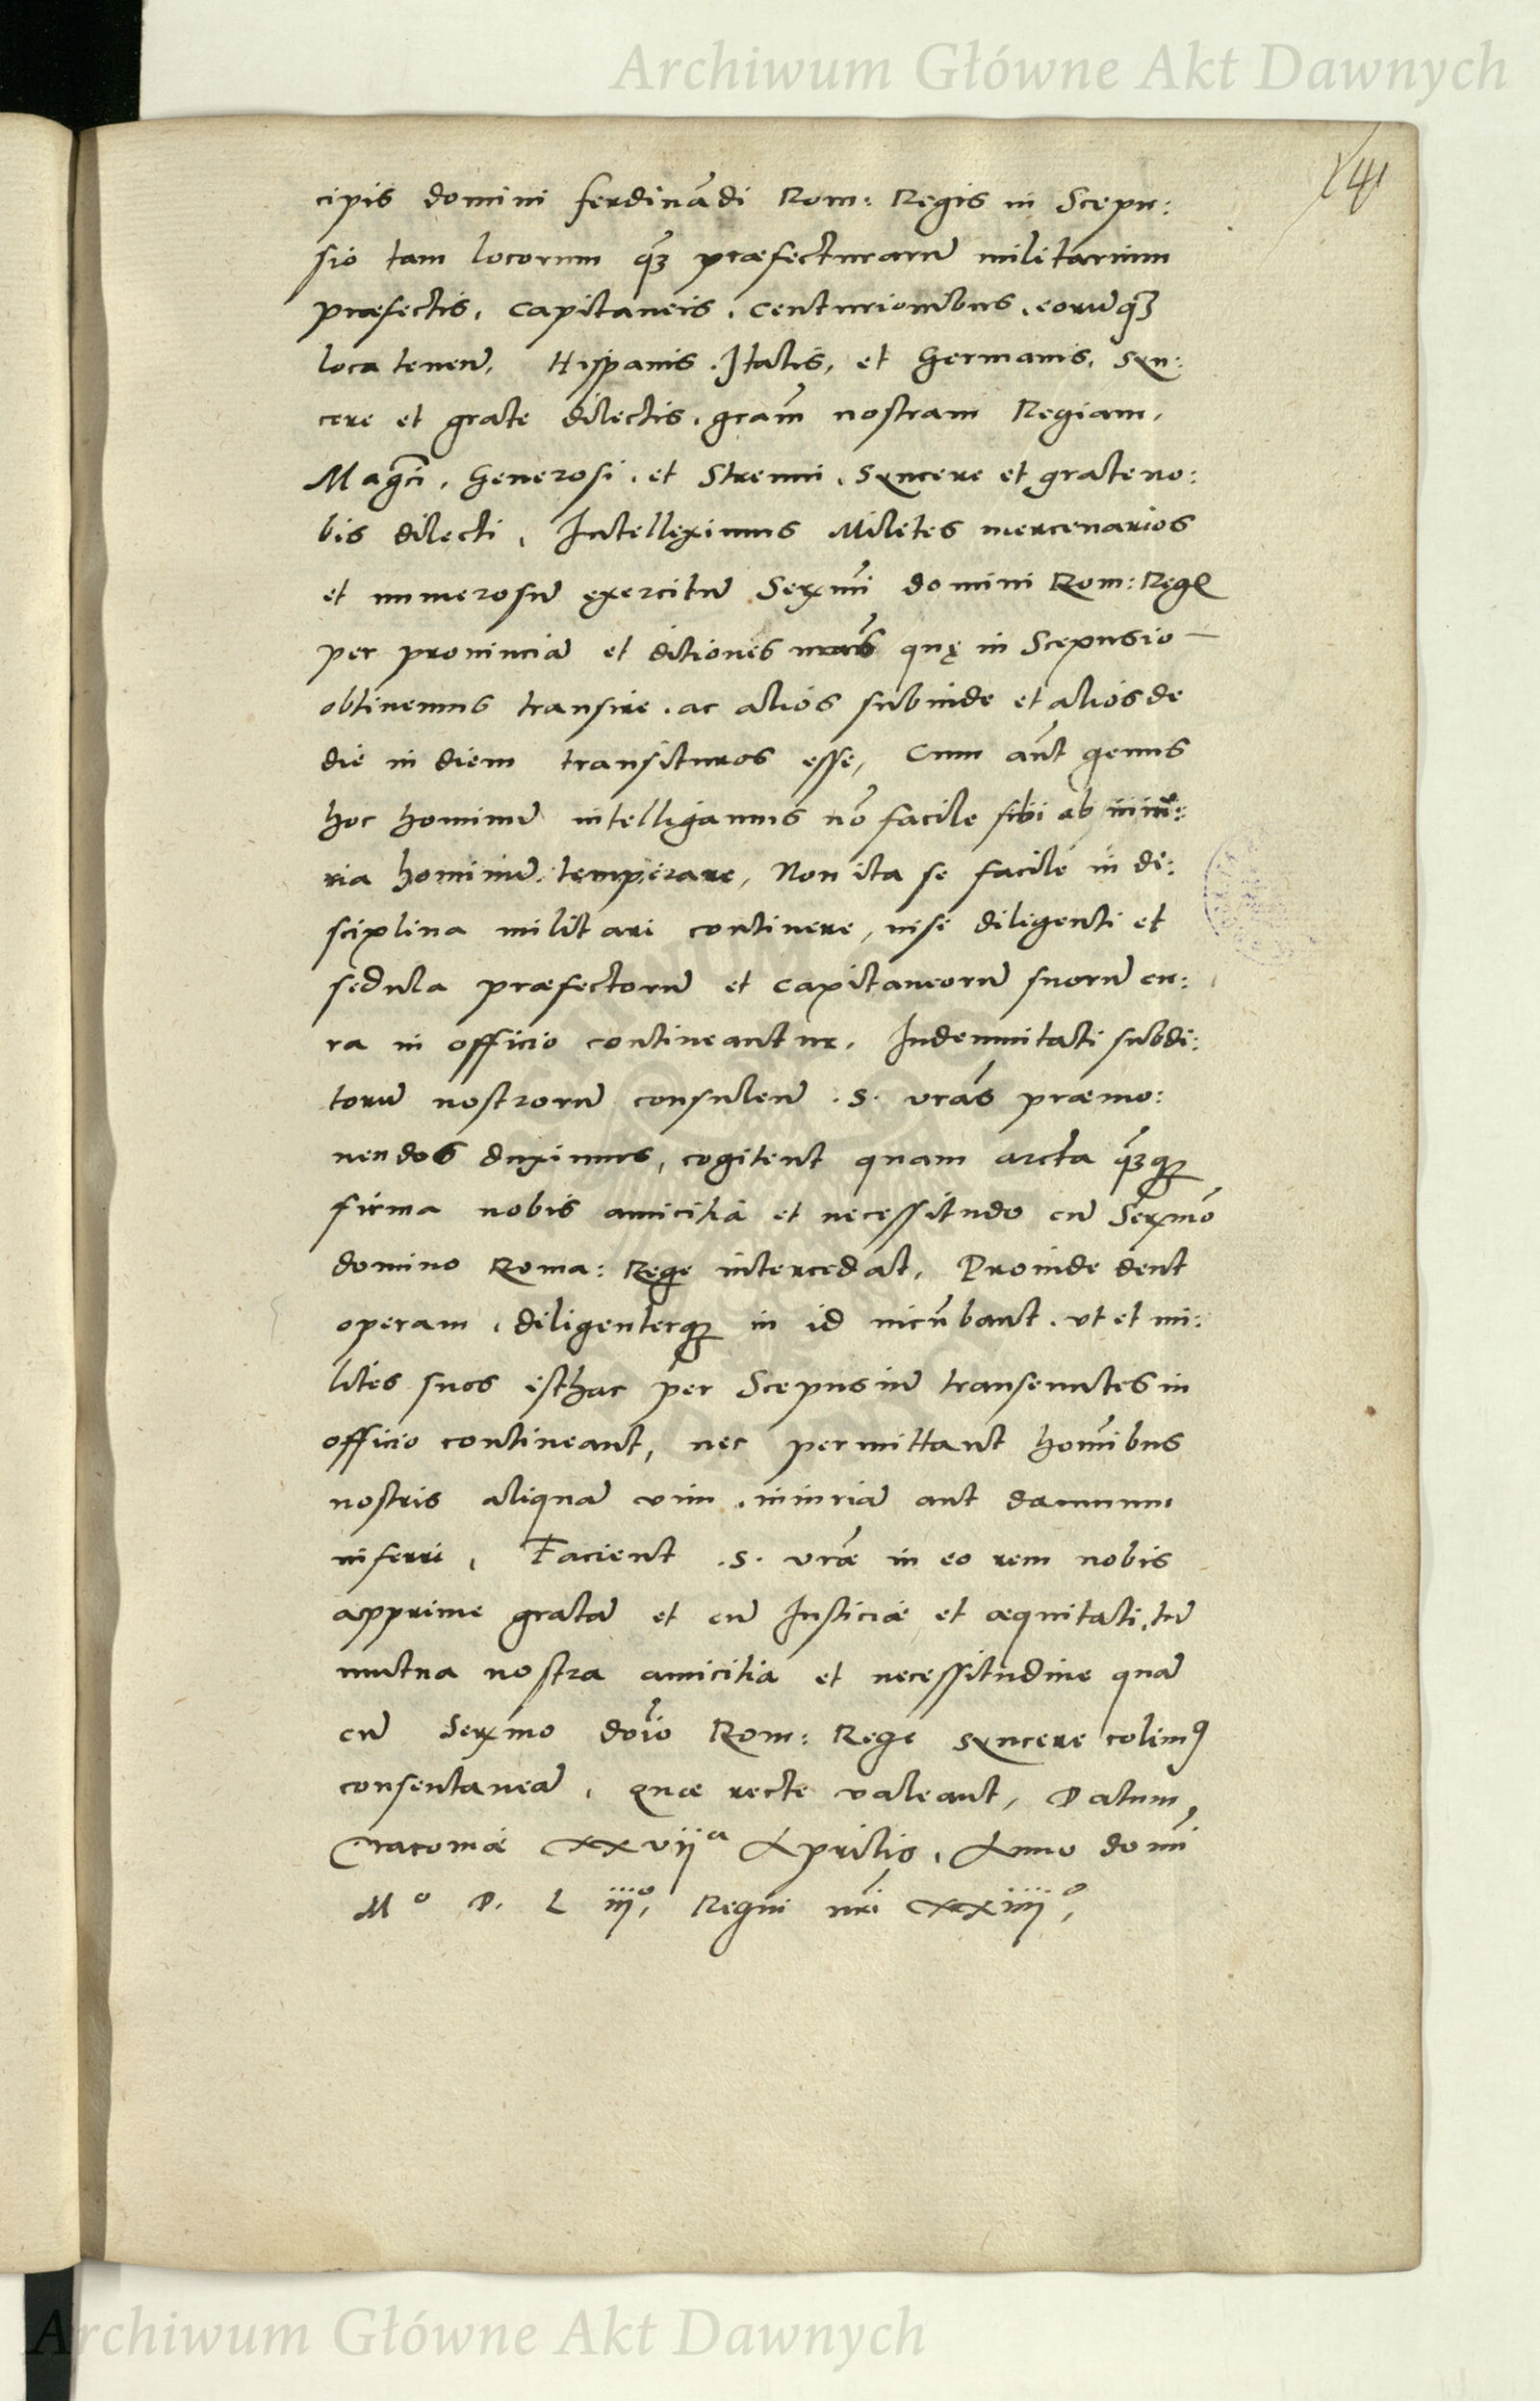 Archiwum Główne Akt Dawnych
141
cipis domini ferdinādi Rom: Regis in Scepu:
sio tam locorum qꝫ præfecturarū militarium
præfectis, Capitaneis, Centurionibus, eorūqꝫ
loca tenen̄, Hispanis, Italis, et Germanis, syn:
cere et grate dilectis, gram̄ nostram Regiam,
Magc̄i, Generosi, et Strenui, Syncere et grate no:
bis dilecti, Intelleximus Milites mercenarios
et numerosū exercitū Serxmi domini Rom: Regꝭ
per provinciā et ditiones nras quę in Scepusio
obtinemus transire, ac alios subinde et alios de
die in diem transituros esse, Cum aūt genus
hoc hominū intelligamus nō facile sibi ab iniu:
ria hominū temperare, Non ita se facile in di:
sciplina militari continere, nisi diligenti et
sedula præfectorū et Capitaneorū suorū cu:
ra in officio contineantur, Indemnitati subdi:
torū nostrorū consulen̄ .S. vrās præmo:
nendos duximus, cogitent quam arcta qꝫqꝫ
firma nobis amicitia et necessitudo cū Serxmō
domino Roma: Rege intercedat, Proinde dent
operam, diligenterqꝫ in id incūbant, ut et mi:
lites suos isthac per Scepusiū transeuntes in
officio contineant, nec permittant homībus
nostris aliquā vim, iniuriā aut damnum
inferri, Facient .S. vræ in eo rem nobis
apprime gratā et cū Iusticiæ et æquitati, tū
mutua nostra amicitia et necessitudine quā
cū Serxmo dōīo Rom: Rege syncere colimꝰ
consentaneā, Quæ recte valeant, Datum
Cracoviæ XXVIIa Aprilis, Anno domī
Mo D. L iijo, Regni nri XXiiijo,
Archiwum Główne Akt Dawnych